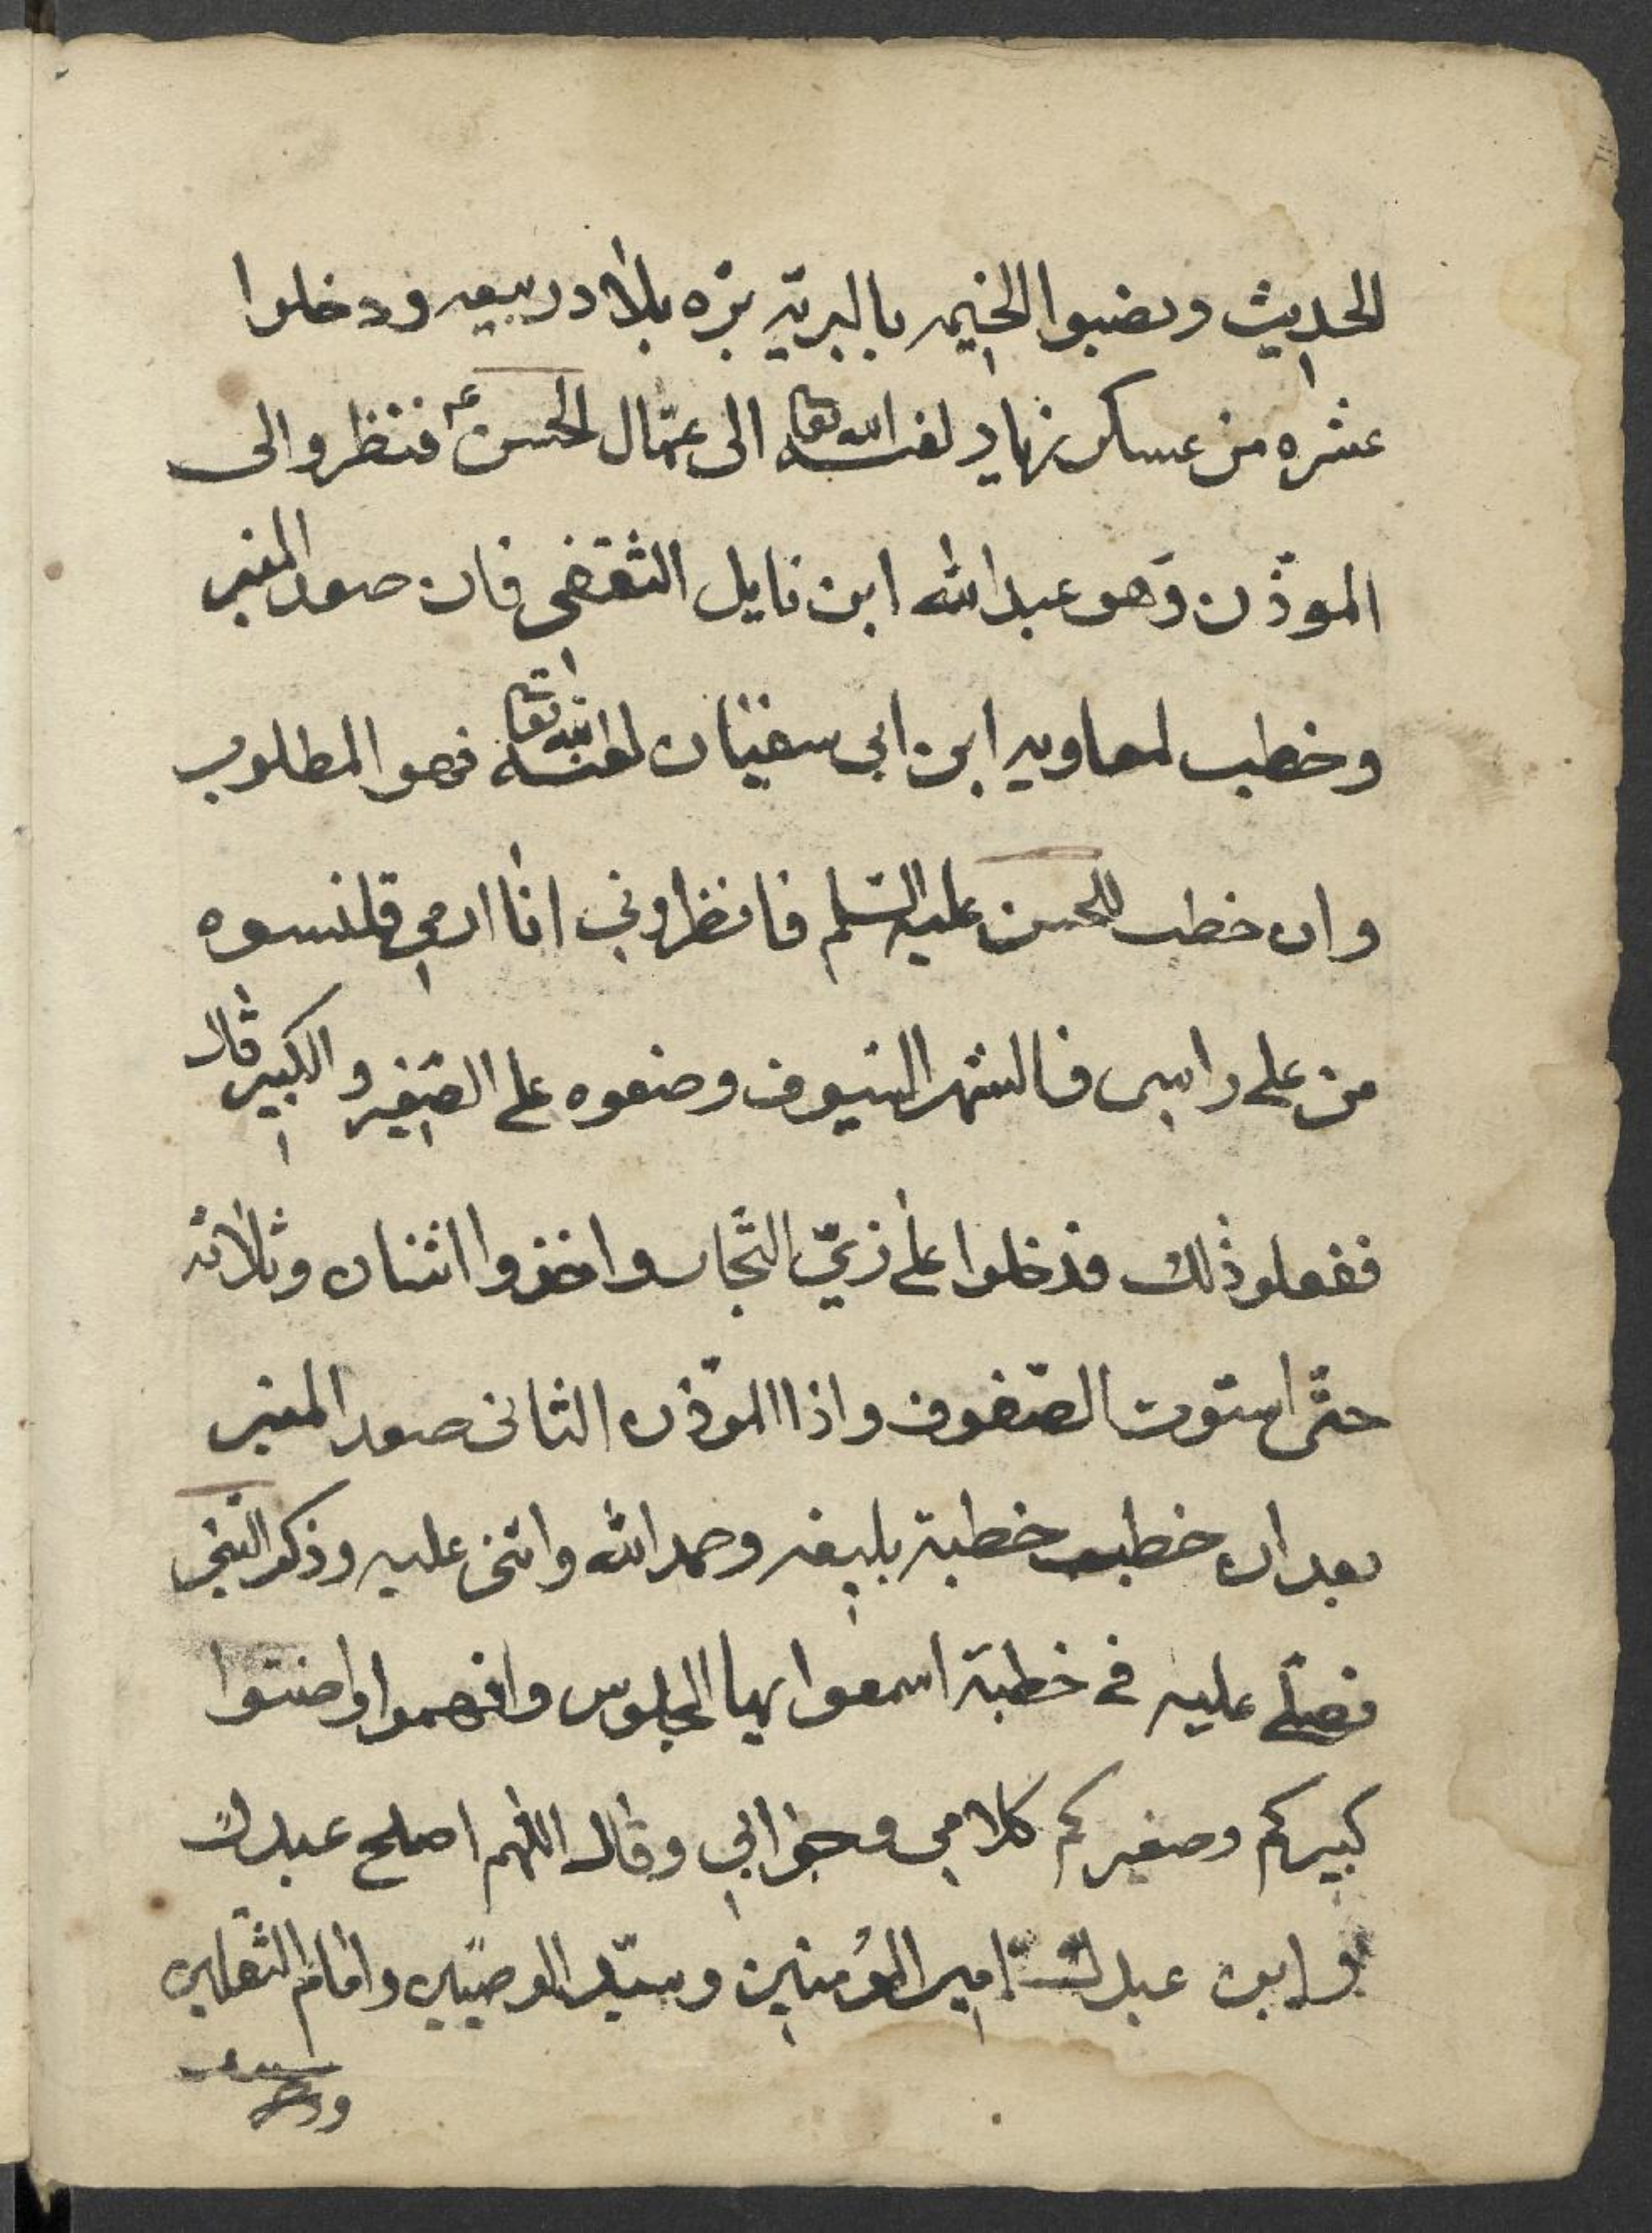 الحديث ونضبوا الخيمه بالبريّه بره بلاد ربيعه ودخلوا
عشره من عسكر زياد لعنه الله تعا الى عمّال الحسن ع فننظروا الى
الموذّن وَهو عبدالله ابن نايل الثقفي فان صعد المنبر
وخطب لمعاويه ابن ابي سفيان لعنه الله تعا فهو المطلوب
وان خطب للحسن عليه السّلم فانظروني انا ارمي قلنسوه
من على راسي فالشهر السيوف وضعوه على الصّغير والكبير قال
ففعلو ذلك فدخلوا على زيّ التّجار واخذوا اثنان وثلاثه
حتّى استوت الصّفوف واذا الموّذن الثاني صعد المنبر
بعد ان خطب خطبة بليغه وحمد الله واثنى عليه وذكر النبي
فصلّى عليه في خطبة اسمعوا يها الجلوس وافهموا وانصتوا
كبيركم وصغيركم كلامي وجوابي وقال اللهم اصلح عبدك
وابن عبدك امير المؤمنين وسيّد الوصيّين وامام الثقلين